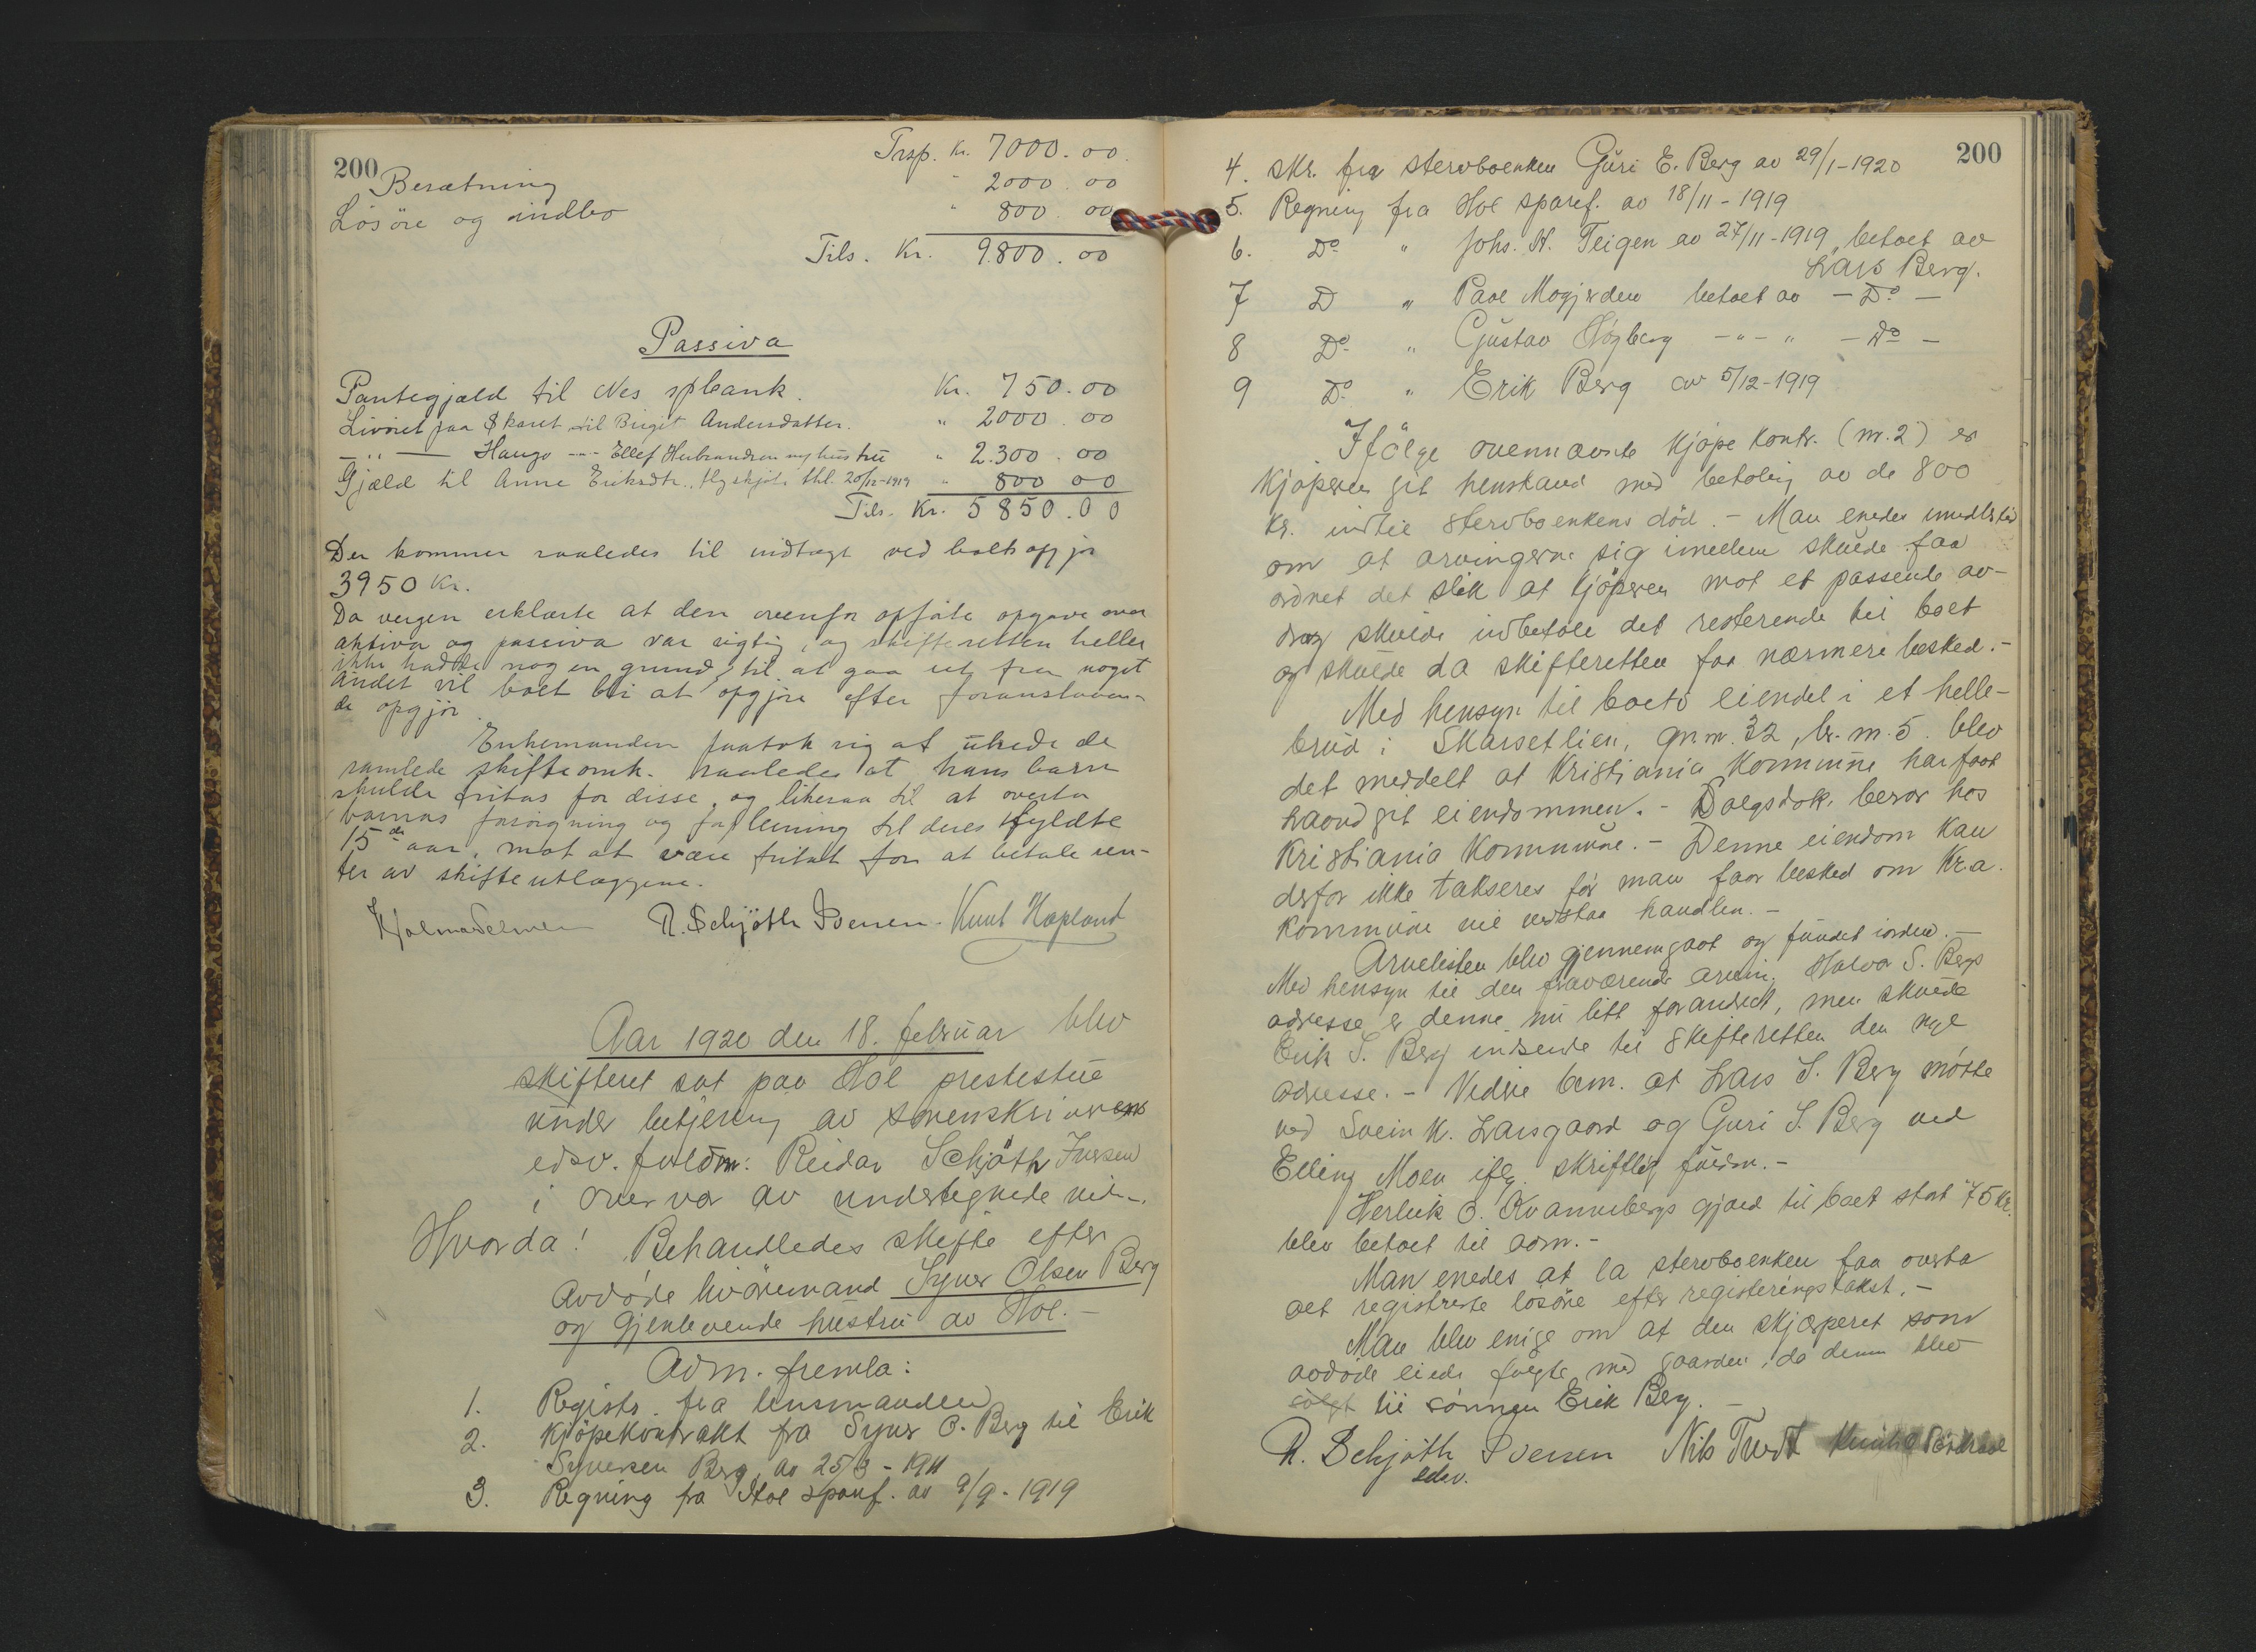 200
Trsp. Kr. 7000.00
Besætning " 2000.00
Lösöre og indbo " 800.00
Tils. Kr. 9.800.00
Passiva
Pantegjæld til Nes spbank. Kr. 750.00
Livöret paa Skaret til Birgit Andersdatter. " 2000.00
— " — Haugo -"- Ellef Herbrandsen og hustru " 2.300.00
Gjæld til Anne Eriksdtr. thl. 20/12-1919 " 800 00
Tils. Kr. 5850.00
Der kommer saaledes til indtægt ved boets opgjör
3950 Kr.
Da vergen erklærte at den ovenfor opförte opgave over
aktiva og passiva var rigtig, og skifteretten heller
ikke hadde nogen grund til at gaa ut fra noget
andet vil boet bli at opgjöre efter foranstaaen-
de opgjör.
Enkemanden paatok sig at utrede de
samlede skifteomk. saaledes at hans barn
skulde fritas for disse, og likesaa til at overta
barnas forsörgning og til deres fyldte
15de aar, mot at være fritat for at betale ren-
ter av skifteutlæggene.
R. Schjöth Iversen. Knut Hapland
Aar 1920 den 18. februar blev
skifteret sat paa Hol prestestue
under betjening av sorenskriveren
edsv. fuldm: Reidar Schjöth Iversen
i overvær av undertegnede vidn.
Hvorda! Behandledes skifte efter
avdöde livöremand Syver Olsen Berg
og gjenlevende hustru av Hol.-
Adm. fremla:
1. Registr. fra lensmanden
2. Kjöpekontrakt fra Syver O. Berg til Erik
Syversen Berg av 25/3 - 1911
3. Regning fra Hol sparef. av 9/9 - 1919
200
4. Skr. fra stervboenken Guri E. Berg av 29/1-1920
5. Regning fra Hol sparef. av 18/11 - 1919
6. Do " Johs. N. Teigen av 27/11-1919 betalt av
Lars Berg.
7 D " Paal Mogjerden betalt av - Do -
8 Do " Gustav Högberg - " - " - Do -
9 Do " Erik Berg av 5/12-1919
Ifölge ovennævnte kjöpekontr. (nr. 2) er
kjöperen git henstand med betaling av de 800
kr. indtil stervboenkens död. - Man enedes imidlertid
om at arvingerne sig imellem skulde faa
ordnet det slik at kjöperen mot et passende av-
drag skulde indbetale det resterende til boet
og skulde da skifteretten faa nærmere besked.-
Med hensyn til boets eiendel i et helle-
brud i Skarsetlien, gr.nr. 32, br.nr. 5. blev
det meddelt at Kristiania kommune har faat
haand git eiendommen. - Salgsdok. beror hos
Kristiania kommune. - Denne eiendom kan
derfor ikke takseres för man faar besked om Kr.a.
kommune vil vedstaa handlen. -
Arvelisten blev gjennemgaat og fundet iorden. -
Med hensyn til den fraværende arving Halvor S. Bergs
adresse er denne nu litt forandret, men skulde
Erik S. Berg indsende til skifteretten den nye
adresse. - Vedre bem. at Lars S. Berg mötte
ved Svein K. Larsgaard og Guri S. Berg ved
Elling Moen iflg. skriftlig fuldm. -
Herleik O. Kvannebergs gjæld til boet stort 75 kr.
blev betalt til adm. -
Man enedes at la stervboenken faa overta
det registrerte lösöre efter registreringstakst. -
Man blev enige om at den skjæperet som
avdöde eiede fulgte med gaarden, da denne blev
solgt til sönnen Erik Berg. -
R. Schjöth Iversen Nils Tvedt
edsv.